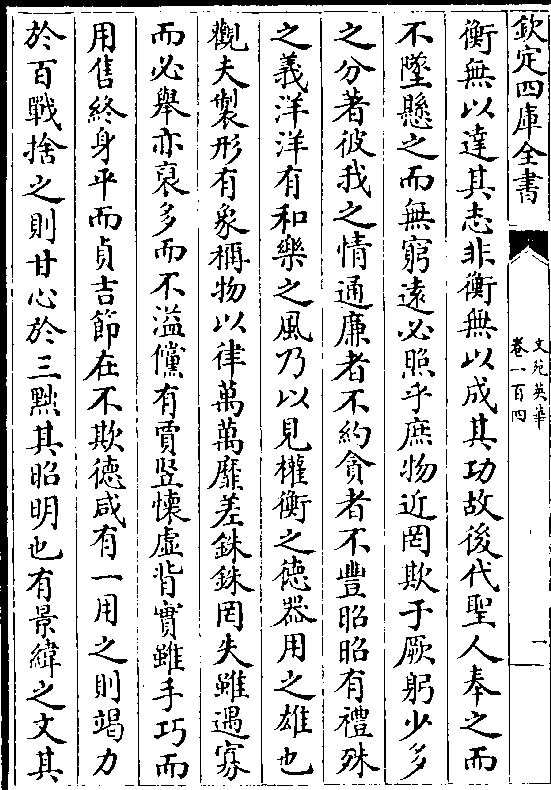 欽定四庫全書
文苑英華
卷一百四
一
衡無以達其志非衡無以成其功故後代聖人奉之而
不墜懸之而無窮遠必照乎庶物近罔欺于厥躬少多
之分著彼我之情通廉者不約貪者不豐昭昭有禮殊
之義洋洋有和樂之風乃以見權衡之徳器用之雄也
觀夫製形有象稱物以律萬萬靡差銖銖罔失雖遇寡
而必舉亦裒多而不溢儻有賈豎懐虚背實雖手巧而
用售終身平而貞吉節在不欺徳咸有一用之則竭力
於百戰捨之則甘心於三黜其昭明也有景緯之文其